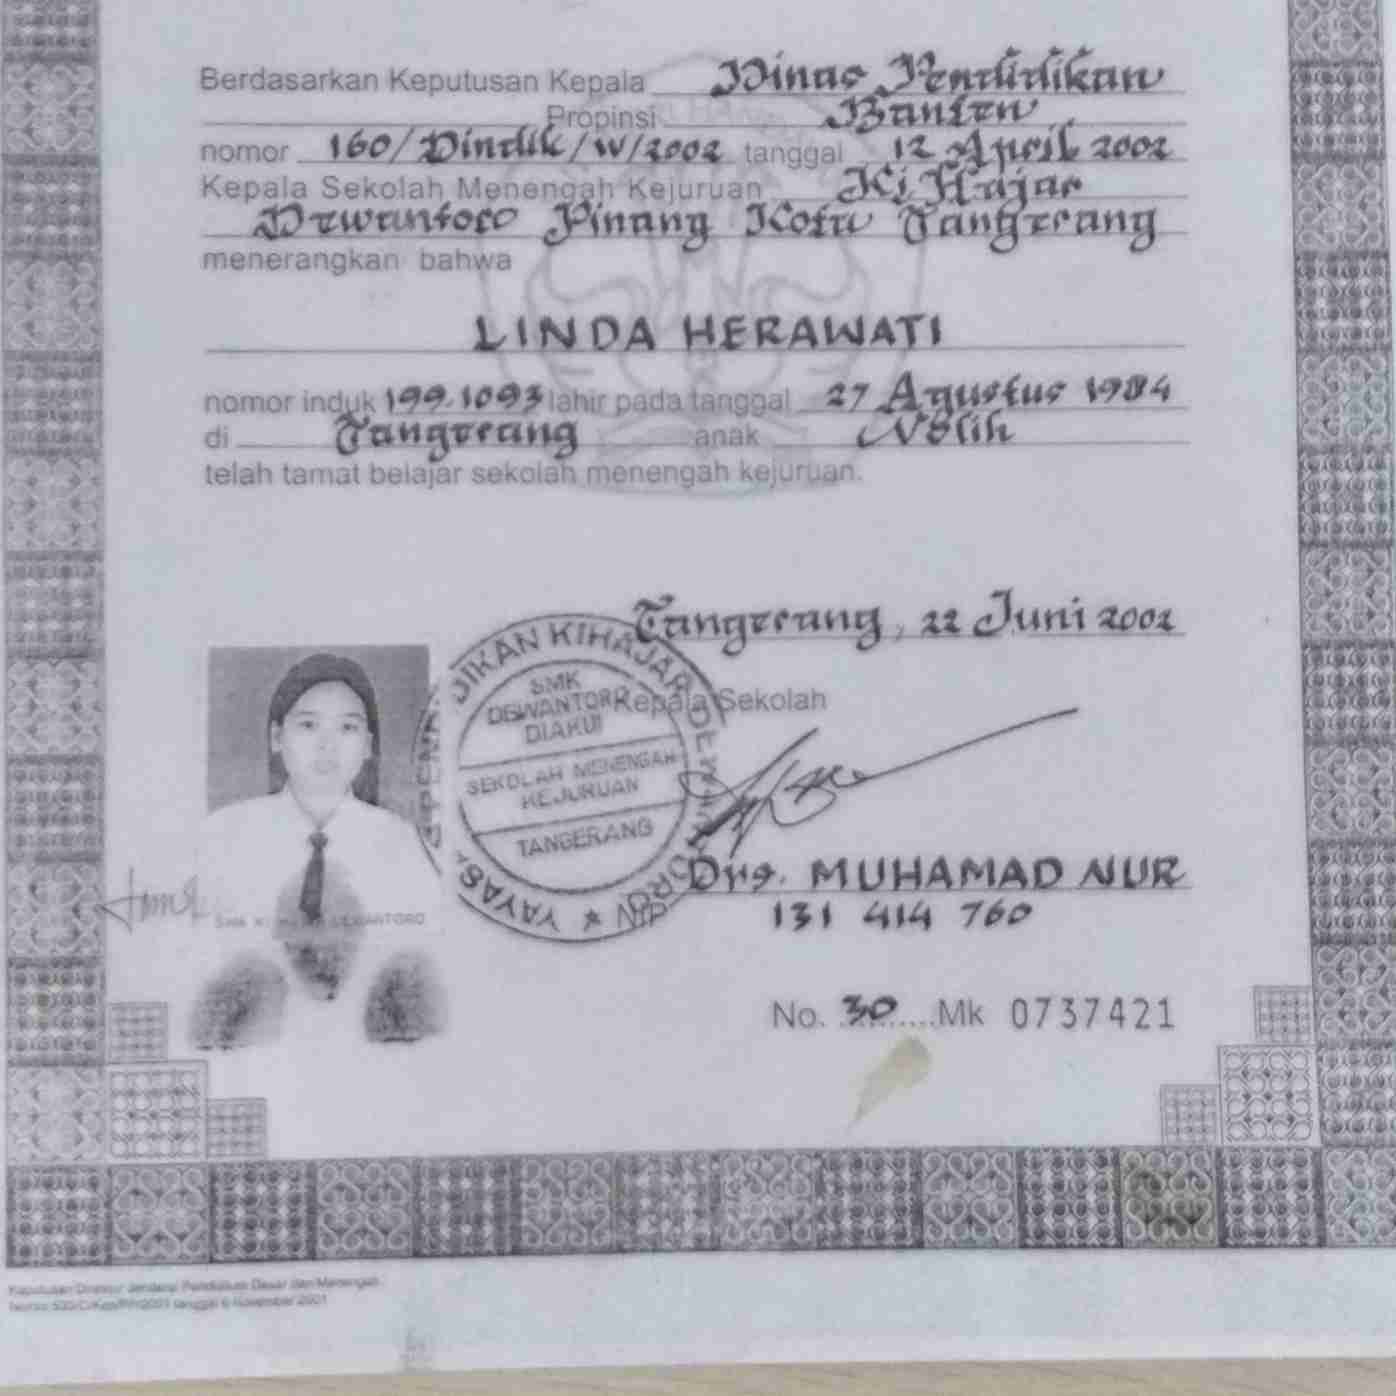 Berdasarkan Keputusan Kepala Dinas Pendidikan
Propinsi Banten
nomor 160/Dindik/IV/2002 tanggal 12 April 2002
Kepala Sekolah Menengah Kejuruan Ki Hajar
Dewantoro Pinang Kota Tangerang
menerangkan bahwa
LINDA HERAWATI
nomor induk 199.1093 lahir pada tanggal 27 Agustus 1984
di Tangerang anak
telah tamat belajar sekolah menengah kejuruan.
Tangerang, 22 Juni 2002
Kepala Sekolah
KIHAJAR DEWANTORO
SMK
DEWANTORO
DIAKUI
SEKOLAH MENENGAH
KEJURUAN
TANGERANG
Drs. MUHAMAD NUR
NIP 131 414 760
No. 30 Mk 0737421
Keputusan Direktur Jenderal Pendidikan Dasar dan Menengah
tanggal 6 November 2001